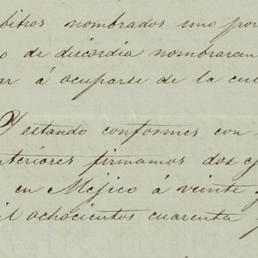 bitros nombrados uno por
o de discordia nombraran
ar á ocuparse de la cue
Y estando conformes con
nteriores firmamos dos ej
en Méjico á veinte y
il ochocientos cuarenta y